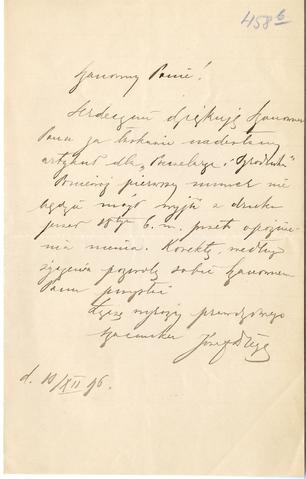 458 6
Szanowny Panie!
Serdecznie dziękuję Szanownemu
Panu za łaskawie nadesłany
artykuł dla
Ponieważ pierwszy numer nie
będzie mógł wyjść z druku
przed 18 b. m. przeto
nia niema. Korektę, według
życzenia pozwolę sobie Szanownemu
Panu przysłać
Łączę wyrazy prawdziwego
szacunku Józef
d. 10/XII 96.